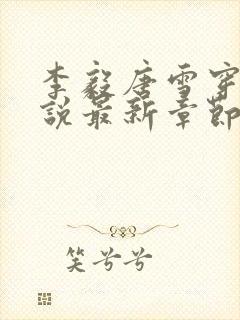 李毅唐雪穿
说最新章节
笑兮兮